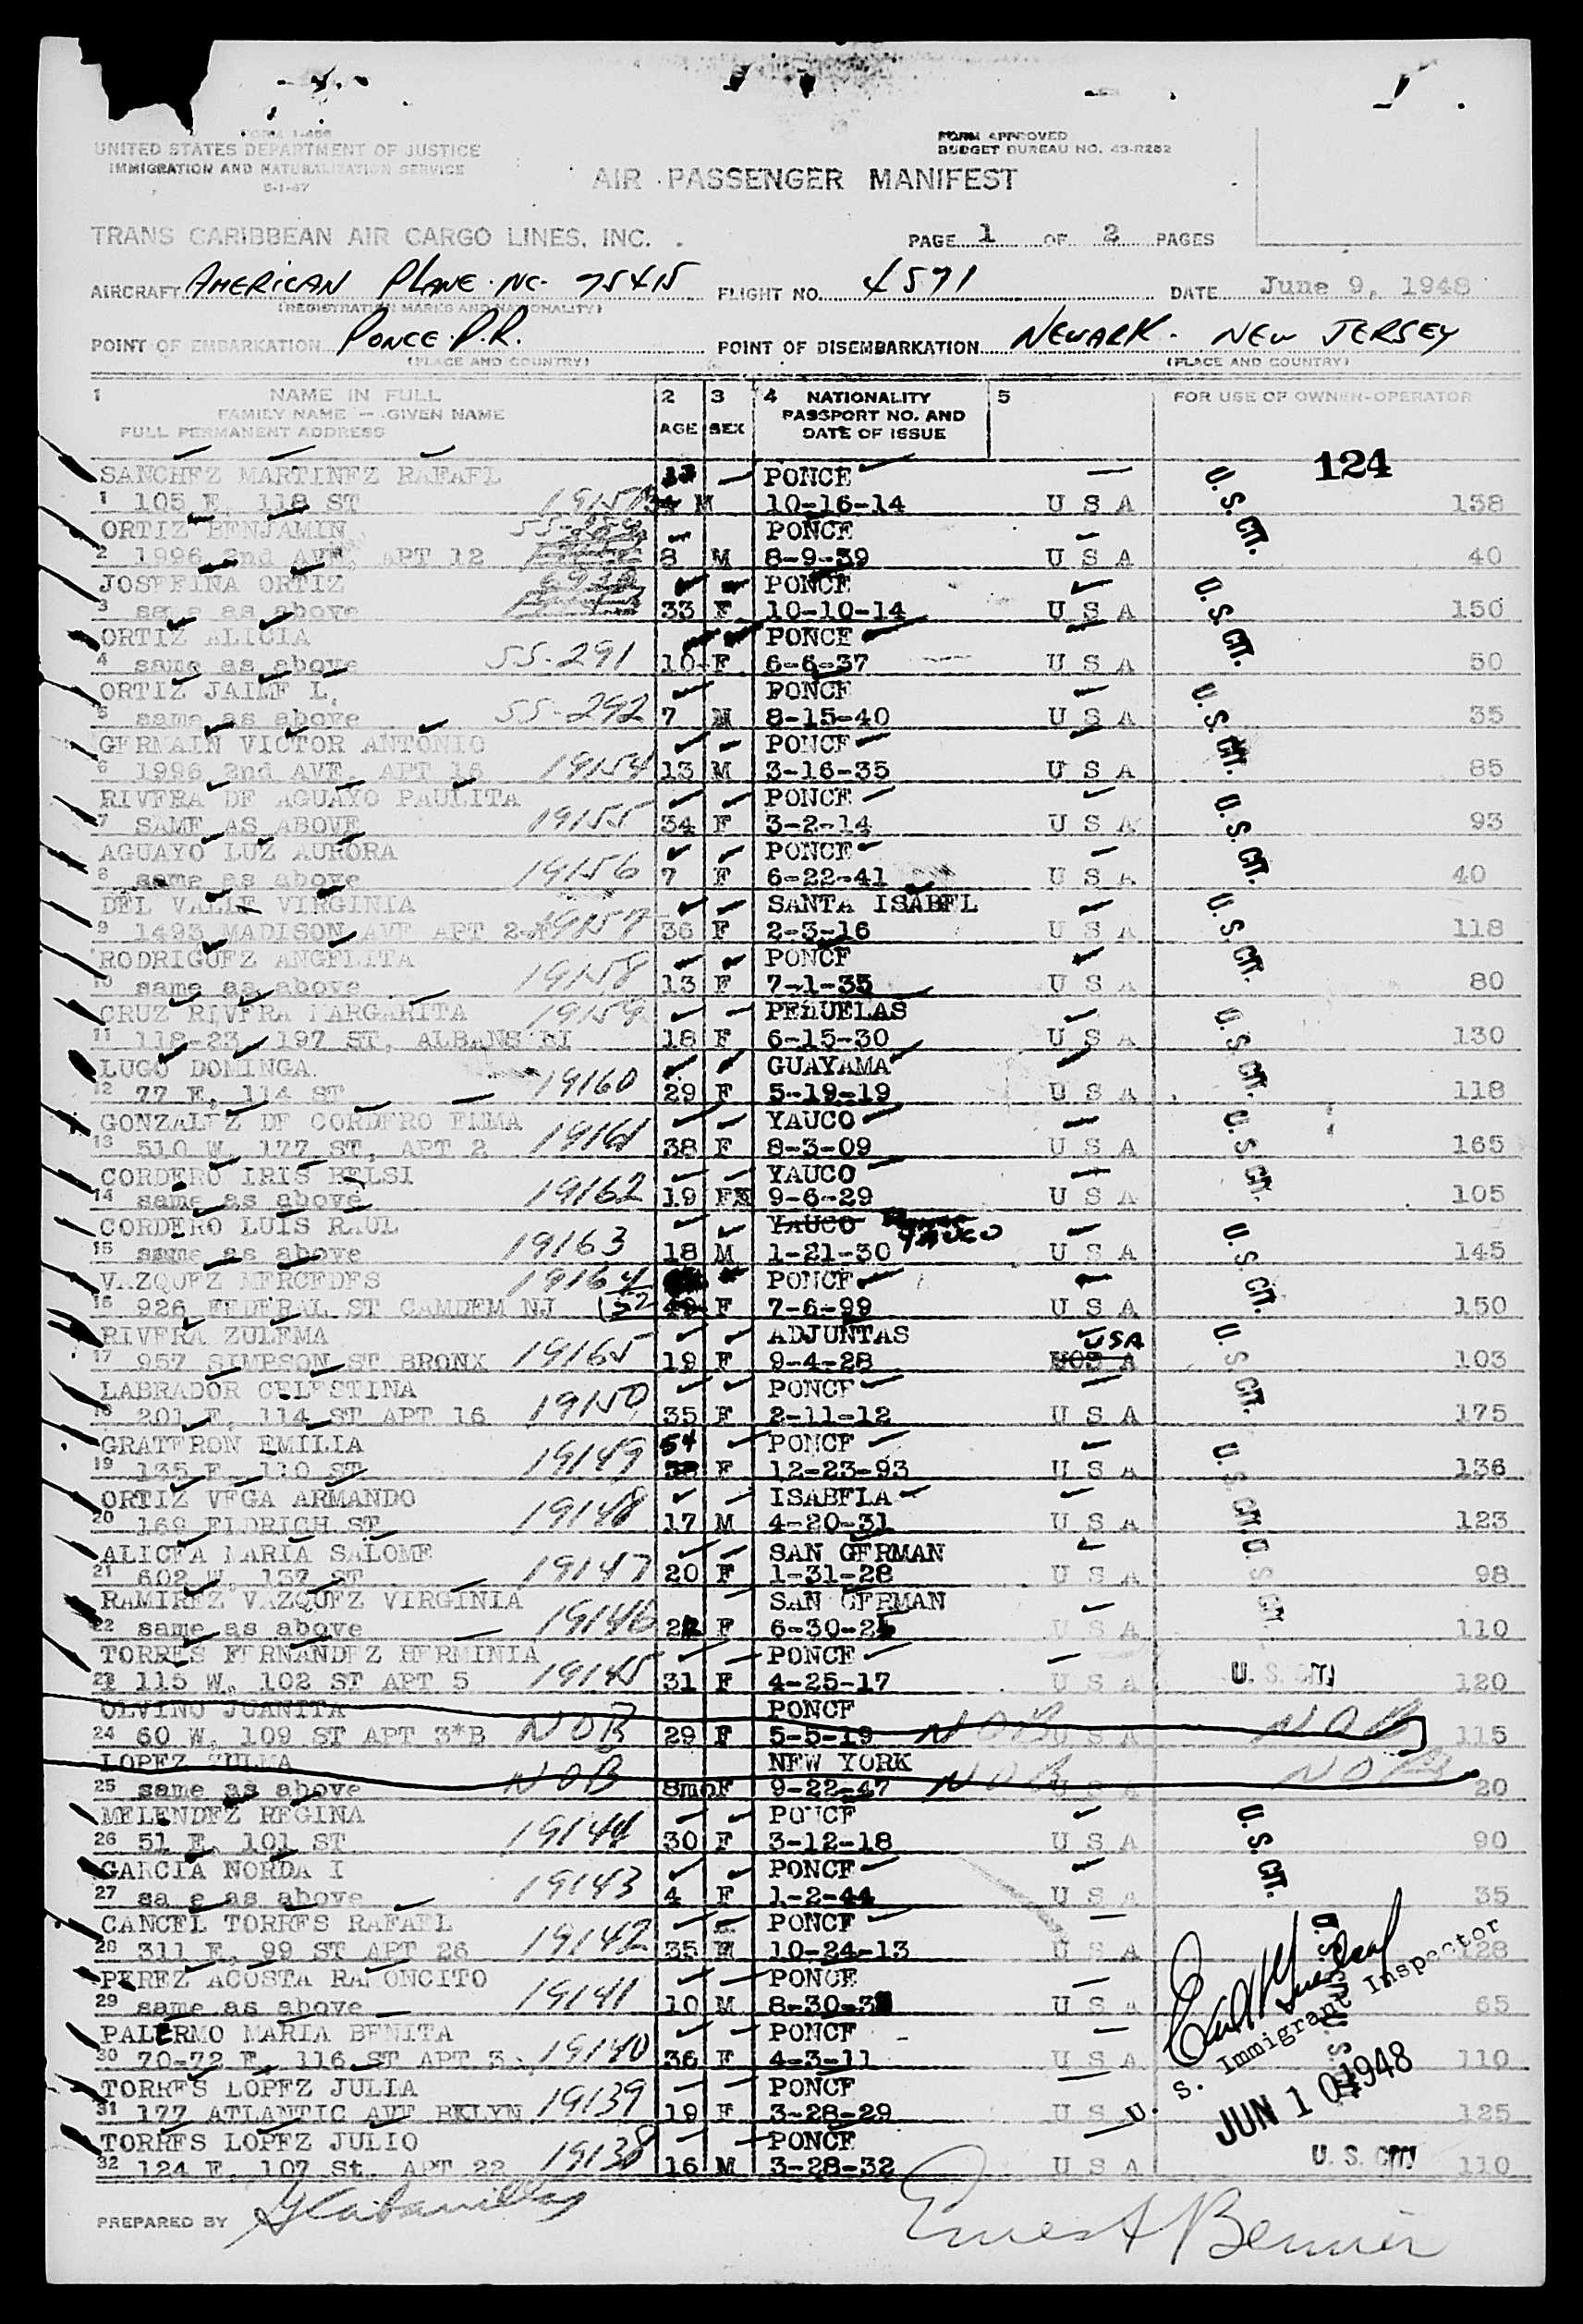 FORM I-466
UNITED STATES DEPARTMENT OF JUSTICE
IMMIGRATION AND NATURALIZATION SERVICE
5-1-47
FORM APPROVED
BUDGET BUREAU NO. 43-R282
AIR PASSENGER MANIFEST
TRANS CARIBBEAN AIR CARGO LINES, INC.
PAGE 1 OF 2 PAGES
AIRCRAFT AMERICAN PLANE NC- 75415 FLIGHT NO. 4571 DATE June 9, 1948
(REGISTRATION MARKS AND NATIONALITY)
POINT OF EMBARKATION PONCE P.R. POINT OF DISEMBARKATION NEWARK - NEW JERSEY
(PLACE AND COUNTRY) (PLACE AND COUNTRY)
1 NAME IN FULL 2 3 4 NATIONALITY 5 FOR USE OF OWNER-OPERATOR
FAMILY NAME — GIVEN NAME PASSPORT NO. AND
FULL PERMANENT ADDRESS AGE SEX DATE OF ISSUE
124
SANCHEZ MARTINEZ RAFAEL PONCE
1 105 E, 118 ST M 10-16-14 U S A 158
ORTIZ BENJAMIN PONCE
2 1996 2nd AVE, APT 12 8 M 8-9-39 U S A 40
JOSEFINA ORTIZ PONCE
3 same as above 33 F 10-10-14 U S A 150
ORTIZ ALICIA PONCE
4 same as above 55-291 10 F 6-6-37 U S A 50
ORTIZ JAIME L, PONCE
5 same as above 55-292 7 M 8-15-40 U S A 35
GERMAIN VICTOR ANTONIO PONCE
6 1996 2nd AVE, APT 16 19154 13 M 3-16-35 U S A 85
RIVERA DE AGUAYO PAULITA PONCE
7 SAME AS ABOVE 19155 34 F 3-2-14 U S A 93
AGUAYO LUZ AURORA PONCE
8 same as above 19156 7 F 6-22-41 U S A 40
DEL VALLE VIRGINIA SANTA ISABEL
9 1493 MADISON AVE APT 19157 36 F 2-3-16 U S A 118
RODRIGUEZ ANGELITA PONCE
10 same as above 19158 13 F 7-1-35 U S A 80
CRUZ RIVERA MARGARITA 19159 PEñUELAS
11 118-23, 197 ST, ALBANS 18 F 6-15-30 U S A 130
LUGO DOMINGA GUAYAMA
12 77 E, 114 ST 19160 29 F 5-19-19 U S A 118
GONZALEZ DE CORDERO EMMA YAUCO
13 510 W, 177 ST, APT 2 19161 38 F 8-3-09 U S A 165
CORDERO IRIS BELSI YAUCO
14 same as above 19162 19 F 9-6-29 U S A 105
CORDERO LUIS RAUL YAUCO YAUCO
15 same as above 19163 18 M 1-21-30 U S A 145
VAZQUEZ MERCEDES 19164 PONCE
16 926 FEDERAL ST CAMDEM NJ F 7-6-99 U S A 150
RIVERA ZULEMA ADJUNTAS USA
17 957 SIMPSON ST BRONX 19165 19 F 9-4-28 103
LABRADOR CELESTINA PONCE
18 201 E, 114 ST APT 16 19150 35 F 2-11-12 U S A 175
GRATERON EMILIA 54 PONCE
19 135 E, 110 ST 19149 F 12-23-93 U S A 136
ORTIZ VEGA ARMANDO ISABELA
20 169 ELDRICH ST 19148 17 M 4-20-31 U S A 123
ALICEA MARIA SALOME SAN GERMAN
21 602 W, 137 ST 19147 20 F 1-31-28 U S A 98
RAMIREZ VAZQUEZ VIRGINIA SAN GERMAN
22 same as above 19146 F U S A 110
TORRES FERNANDEZ HERMINIA PONCE
23 115 W, 102 ST APT 5 19145 31 F 4-25-17 U S A U. S. CIT 120
OLVINO JUANITA PONCE
24 60 W, 109 ST APT 3*B NOB 29 F 5-5-19 NOB U S A NOB 115
LOPEZ ZULMA NEW YORK
25 same as above NOB 8mo F 9-22-47 NOB U S A NOB 20
MELENDEZ REGINA PONCE
26 51 E, 101 ST 19144 30 F 3-12-18 U S A 90
GARCIA NORDA I PONCE
27 sa e as above 19143 4 F 1-2-44 U S A 35
CANCEL TORRES RAFAEL PONCE
28 311 E, 99 ST APT 26 19142 35 M 10-24-13 U S A 128
PEREZ ACOSTA RAMONCITO PONCE
29 same as above 19141 10 M U S A 65
PALERMO MARIA BENITA PONCE
30 70-72 E, 116 ST APT 19140 36 F 4-3-11 U S A 110
TORRES LOPEZ JULIA PONCE
31 177 ATLANTIC AVE BKLYN 19139 19 F 3-28-29 U S A 125
TORRES LOPEZ JULIO PONCE
32 124 E, 107 St, APT 22 19138 16 M 3-28-32 U S A U. S. CIT 110
U. S. CIT.
U. S. CIT.
U. S. CIT.
U. S. CIT.
U. S. CIT.
U. S. CIT.
U. S. CIT.
U. S. CIT.
U. S. CIT.
U. S. CIT.
U. S. CIT.
U. S. CIT.
U. S. Immigrant Inspector
JUN 10 1948
PREPARED BY
Ernest Bennier